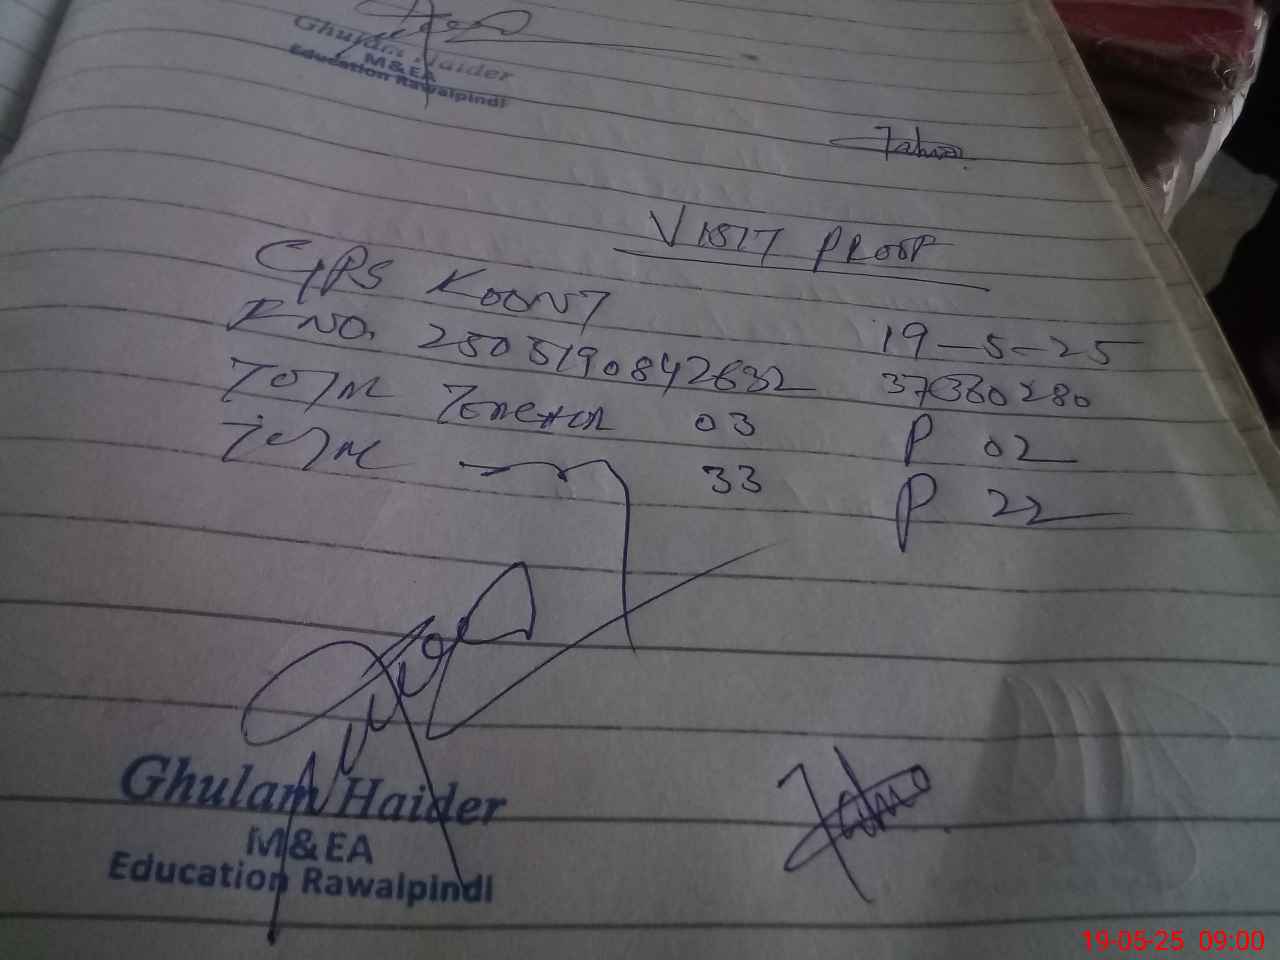 Ghulam Haider
M&EA
Education Rawalpindi
VISIT PROOF
GPS KOONT
19-5-25
R NO. 2505190842632 37330280
TOTAL TEACHER 03 P 02
TOTAL 33 P 22
Ghulam Haider
M&EA
Education Rawalpindi
19-05-25 09:00